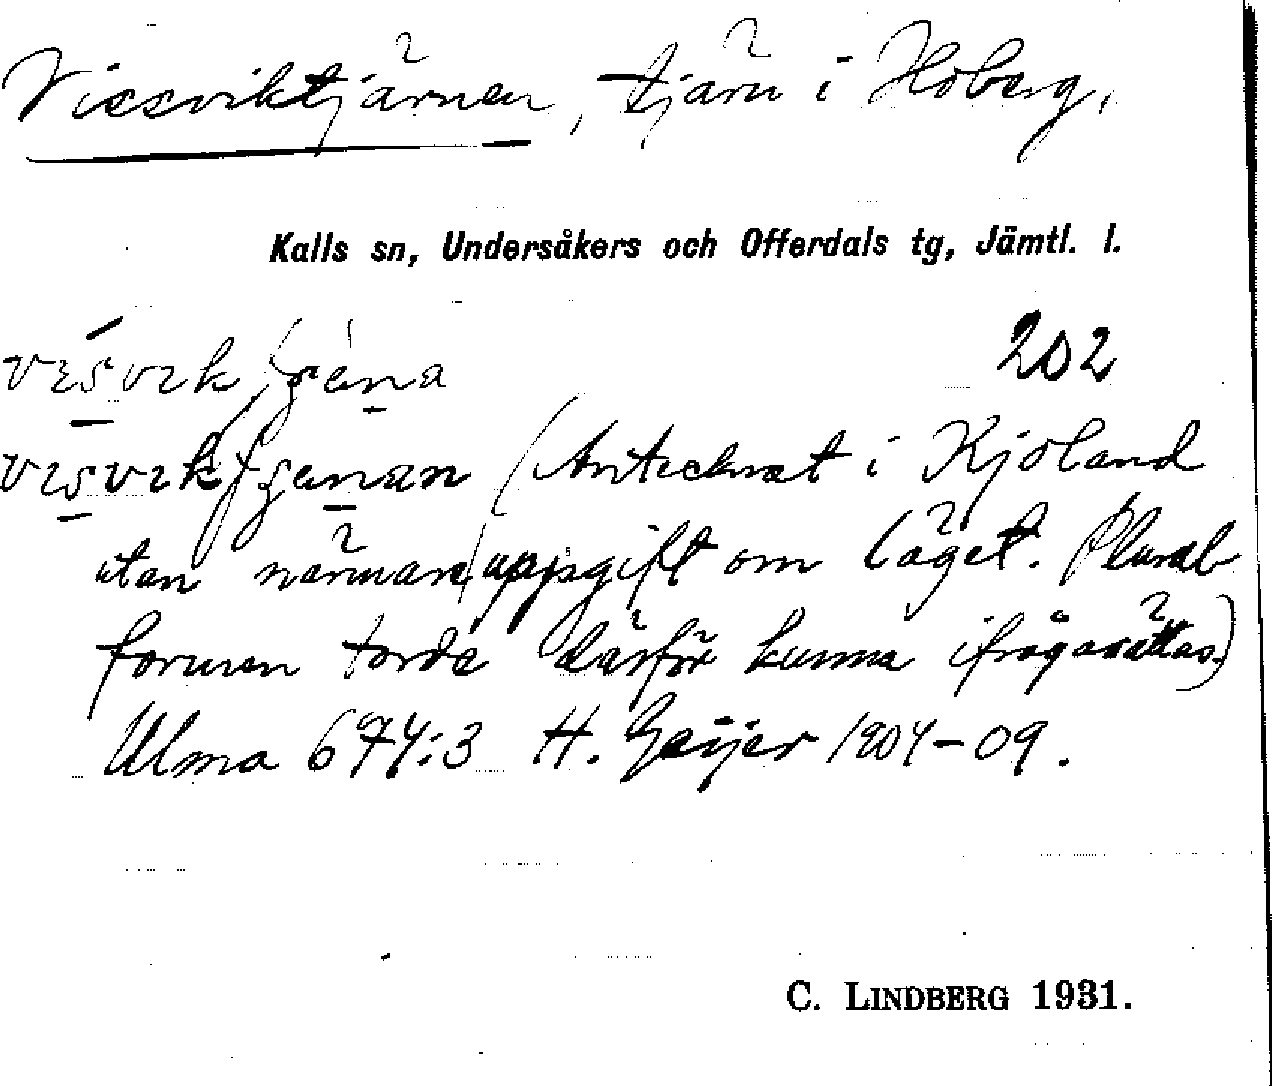 Vissviktjärnen, tjärn i Höberg,
Kalls sn, Undersåkers och Offerdals tg, Jämtl. l.
202
(Antecknat i Kjöland
utan närmare uppgift om läget. Plural-
formen torde därför kunna ifrågasättas.)
Ulma 674:3 H. Geijer 1904-09.
C. LINDBERG 1931.